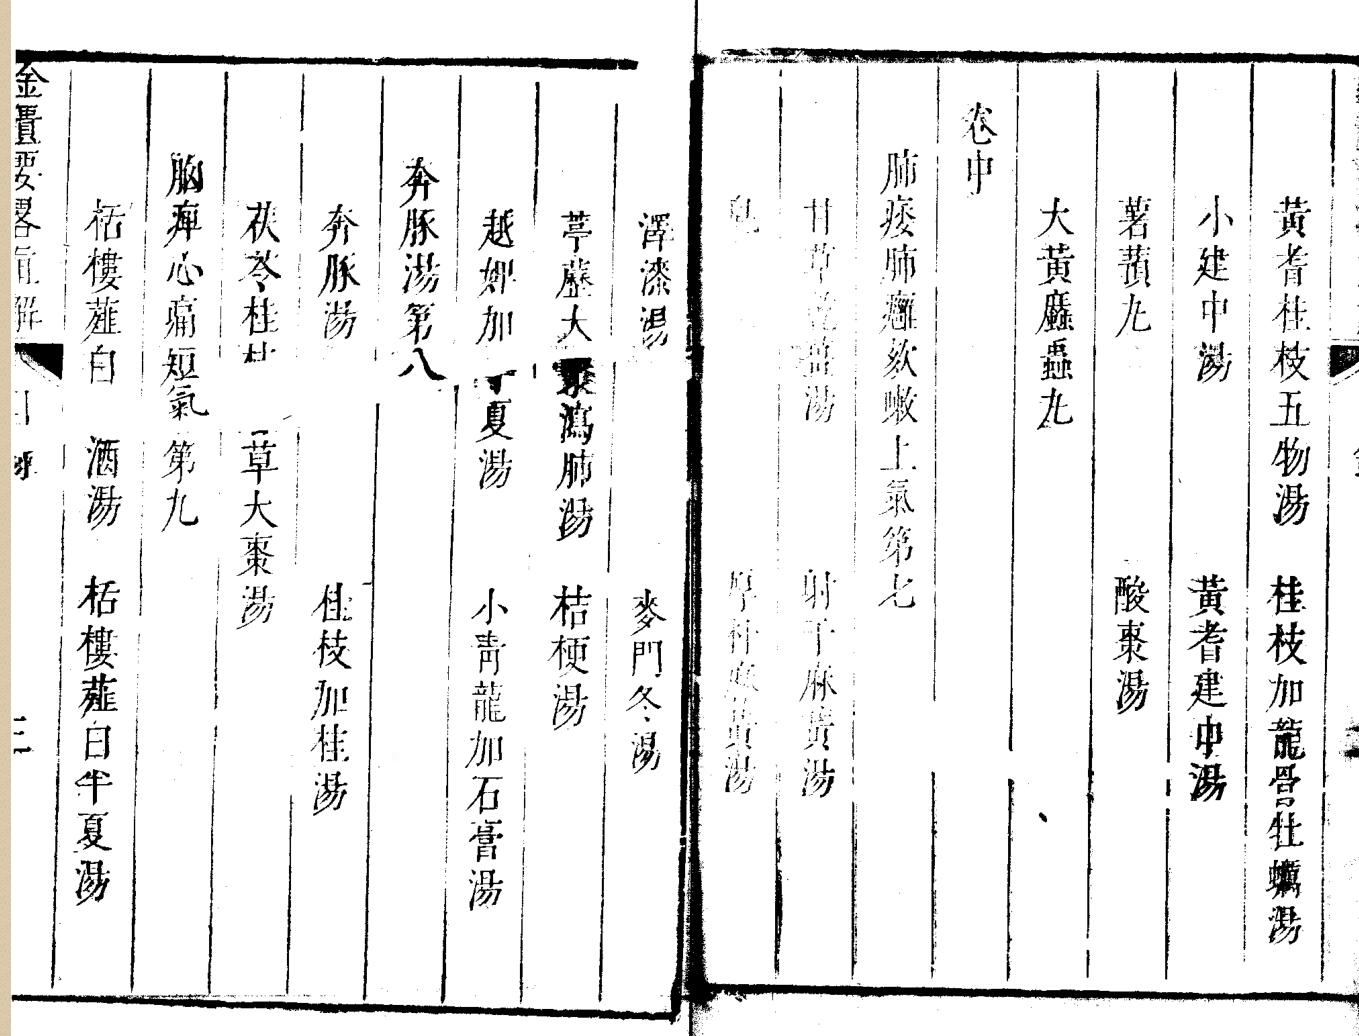 黃耆桂枝五物湯　桂枝加龍骨牡蠣湯
小建中湯　黃耆建中湯
薯蕷丸　酸棗湯
大黃䗪蟲丸
卷中
肺痿肺癰欬嗽上氣第七
甘草乾薑湯　射干麻黃湯
皂　厚朴麻黃湯
澤漆湯　麥門冬湯
葶藶大棗瀉肺湯　桔梗湯
越婢加半夏湯　小青龍加石膏湯
奔豚湯第八
奔豚湯　桂枝加桂湯
茯苓桂枝　草大棗湯
胸痺心痛短氣第九
栝樓薤白　酒湯　栝樓薤白半夏湯
金匱要畧直解　目録　三